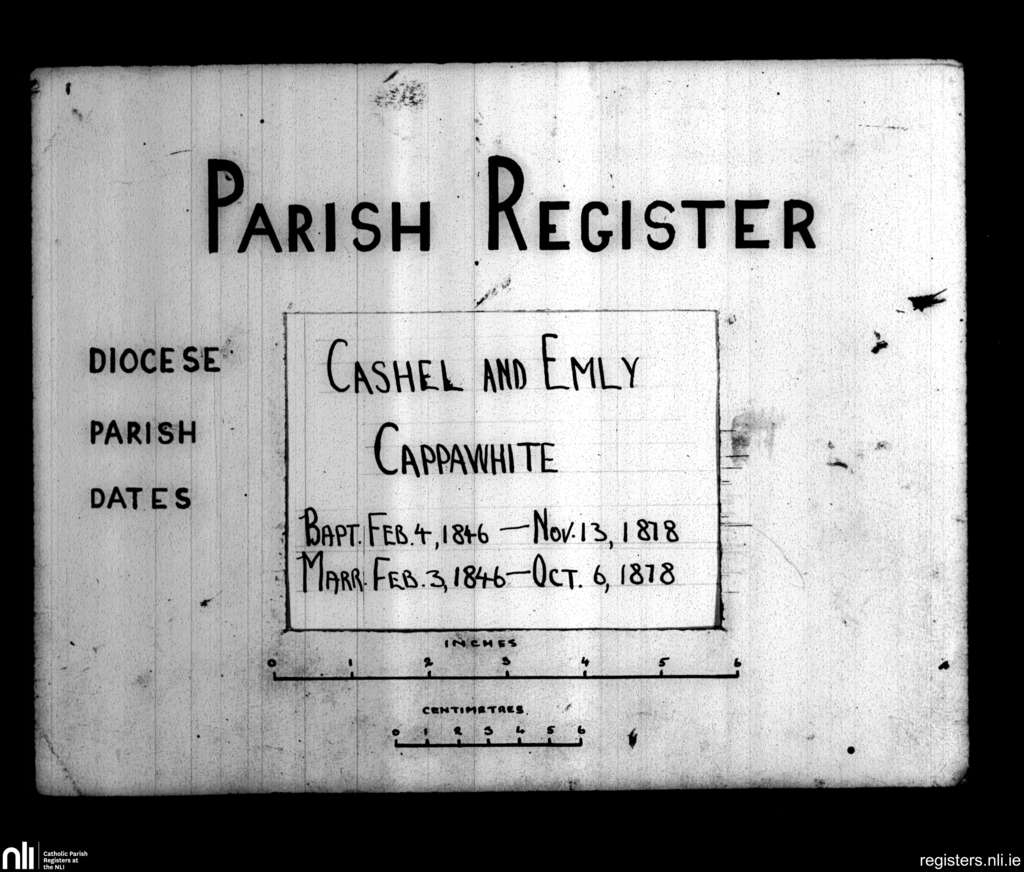 PARISH REGISTER
DIOCESE CASHEL AND EMLY
PARISH CAPPAWHITE
DATES BAPT. FEB. 4, 1846 — NOV. 13, 1878
MARR. FEB. 3, 1846 — OCT. 6, 1878
INCHES
0 1 2 3 4 5 6
CENTIMETRES
0 1 2 3 4 5 6
nli Catholic Parish
Registers at
the NLI
registers.nli.ie